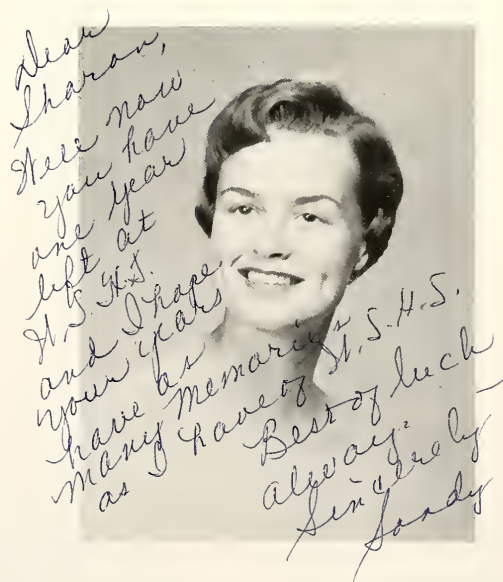 Dear
Sharon,
Well now
you have
one year
left at
W. S. H. S.
and I hope
your years
have as
many memories
as I have of W. S. H. S.
Best of luck
always.
Sincerely –
Sandy